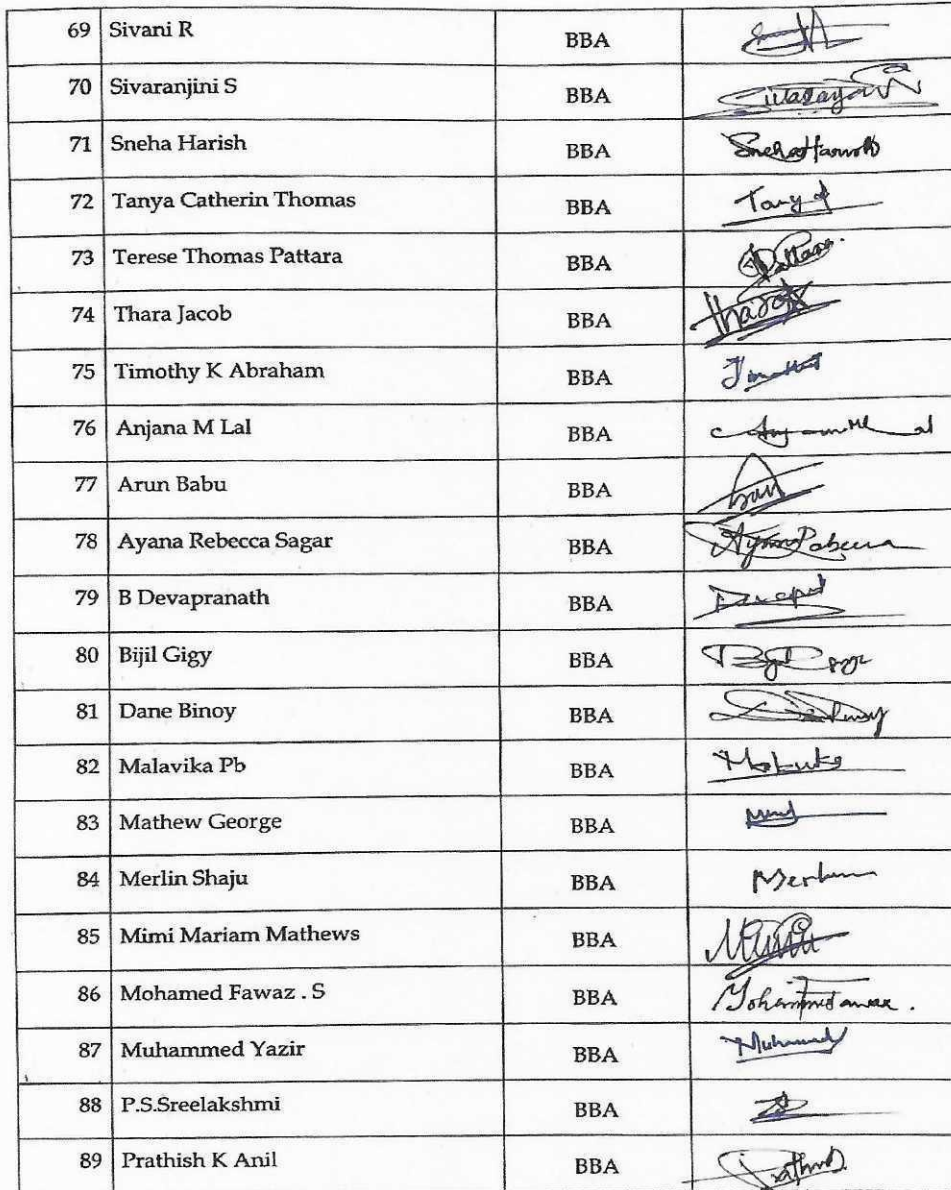 69 Sivani R BBA
70 Sivaranjini S BBA
71 Sneha Harish BBA Sneha Harish
72 Tanya Catherin Thomas BBA Tanya
73 Terese Thomas Pattara BBA Pattara.
74 Thara Jacob BBA
75 Timothy K Abraham BBA
76 Anjana M Lal BBA
77 Arun Babu BBA
78 Ayana Rebecca Sagar BBA
79 B Devapranath BBA
80 Bijil Gigy BBA
81 Dane Binoy BBA
82 Malavika Pb BBA
83 Mathew George BBA
84 Merlin Shaju BBA Merlin
85 Mimi Mariam Mathews BBA
86 Mohamed Fawaz . S BBA
87 Muhammed Yazir BBA
88 P.S.Sreelakshmi BBA
89 Prathish K Anil BBA